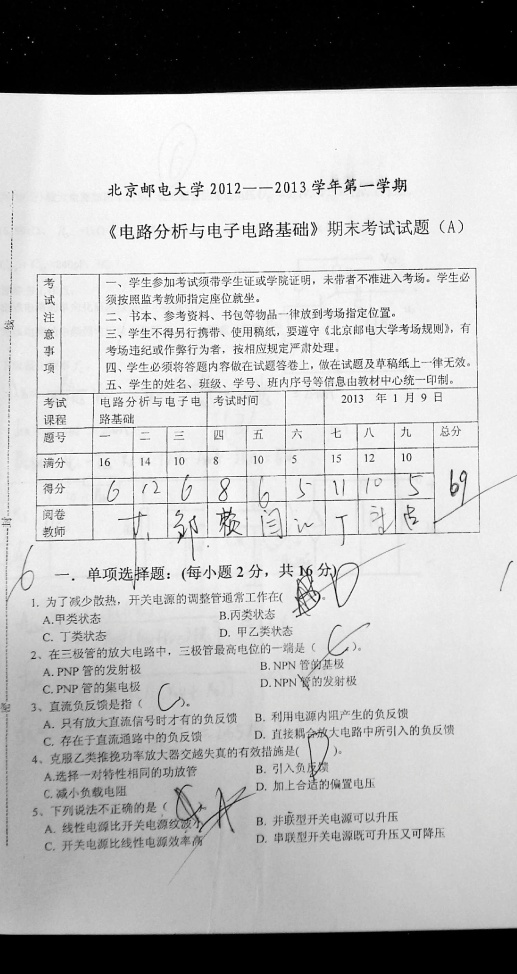 北京邮电大学 2012——2013 学年第一学期
《电路分析与电子电路基础》期末考试试题（A）
考试注意事项
一、学生参加考试须带学生证或学院证明，未带者不准进入考场。学生必
须按照监考教师指定座位就坐。
二、书本、参考资料、书包等物品一律放到考场指定位置。
三、学生不得另行携带、使用稿纸，要遵守《北京邮电大学考场规则》，有
考场违纪或作弊行为者，按相应规定严肃处理。
四、学生必须将答题内容做在试题答卷上，做在试题及草稿纸上一律无效。
五、学生的姓名、班级、学号、班内序号等信息由教材中心统一印制。
考试课程 电路分析与电子电路基础 考试时间 2013 年 1 月 9 日
题号 一 二 三 四 五 六 七 八 九 总分
满分 16 14 10 8 10 5 15 12 10
得分 6 12 6 8 6 5 11 10 5 69
阅卷教师 邹 赖 闫 丁
6
一．单项选择题：(每小题 2 分，共 16 分)
1. 为了减少散热，开关电源的调整管通常工作在( D )。
A.甲类状态 B.丙类状态
C. 丁类状态 D. 甲乙类状态
2、在三极管的放大电路中，三极管最高电位的一端是（ C ）。
A. PNP 管的发射极 B. NPN 管的基极
C. PNP 管的集电极 D. NPN 管的发射极
3、直流负反馈是指（ C ）。
A. 只有放大直流信号时才有的负反馈 B. 利用电源内阻产生的负反馈
C. 存在于直流通路中的负反馈 D. 直接耦合放大电路中所引入的负反馈
4．克服乙类推挽功率放大器交越失真的有效措施是( D )。
A.选择一对特性相同的功放管 B. 引入负反馈
C. 减小负载电阻 D. 加上合适的偏置电压
5、下列说法不正确的是（ A
A. 线性电源比开关电源纹波小 B. 并联型开关电源可以升压
C. 开关电源比线性电源效率高 D. 串联型开关电源既可升压又可降压